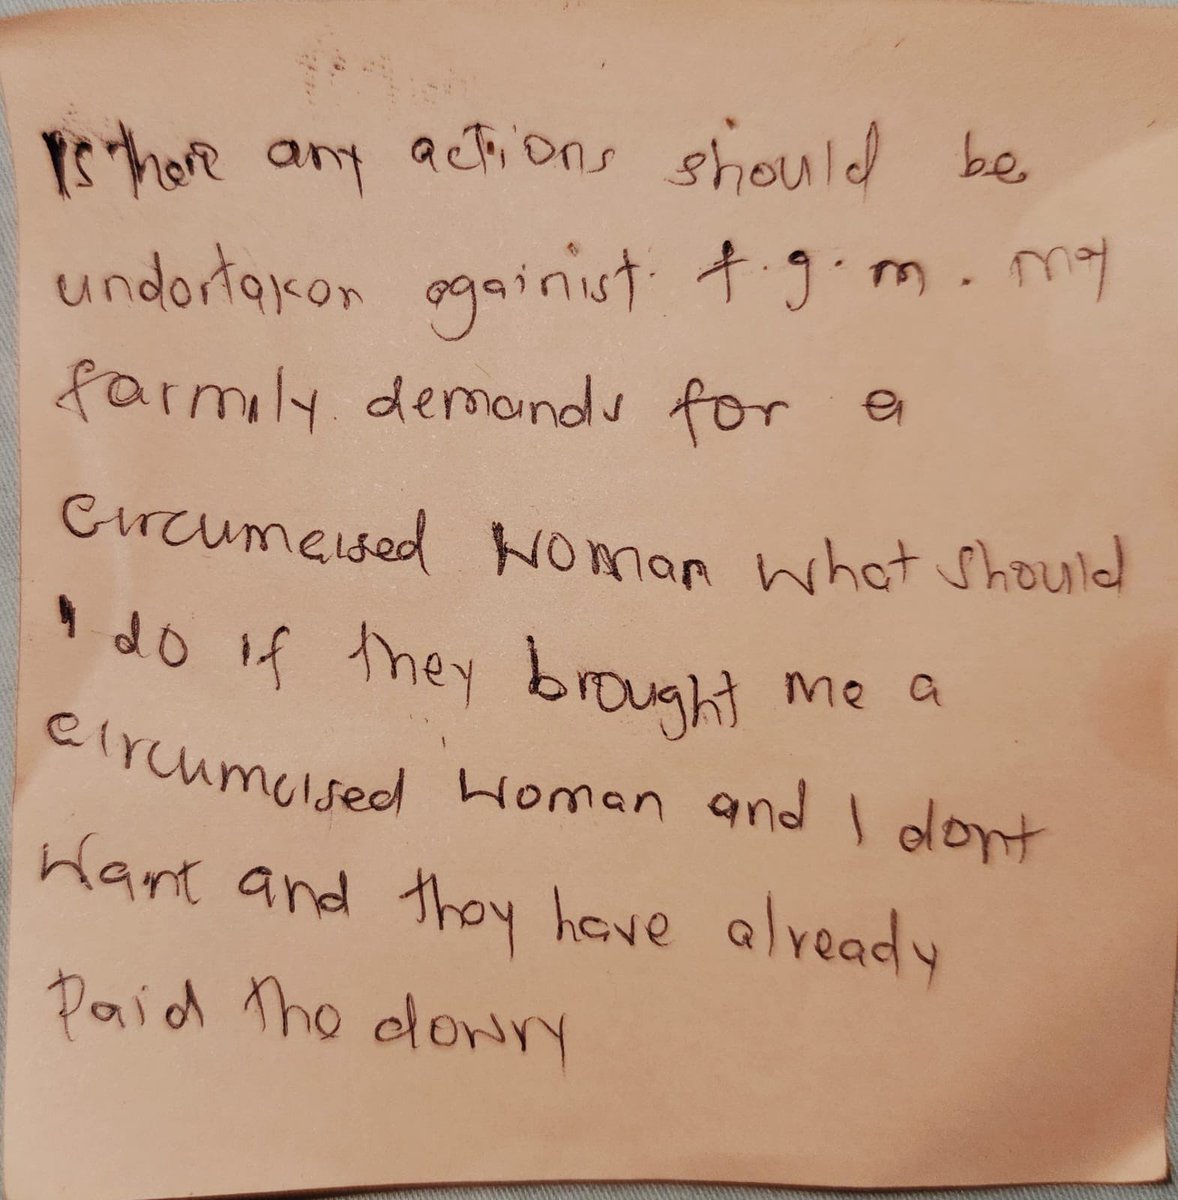 Is there any actions should be
undertaken againist f.g.m. my
farmily demands for a
circumcised woman what should
I do if they brought me a
circumcised woman and I dont
want and they have already
Paid the dowry